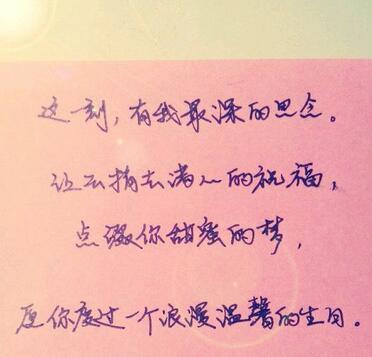 这一刻,有我最深的思念。
让云捎去满心的祝福,
点缀你甜蜜的梦,
愿你度过一个浪漫温馨的生日。